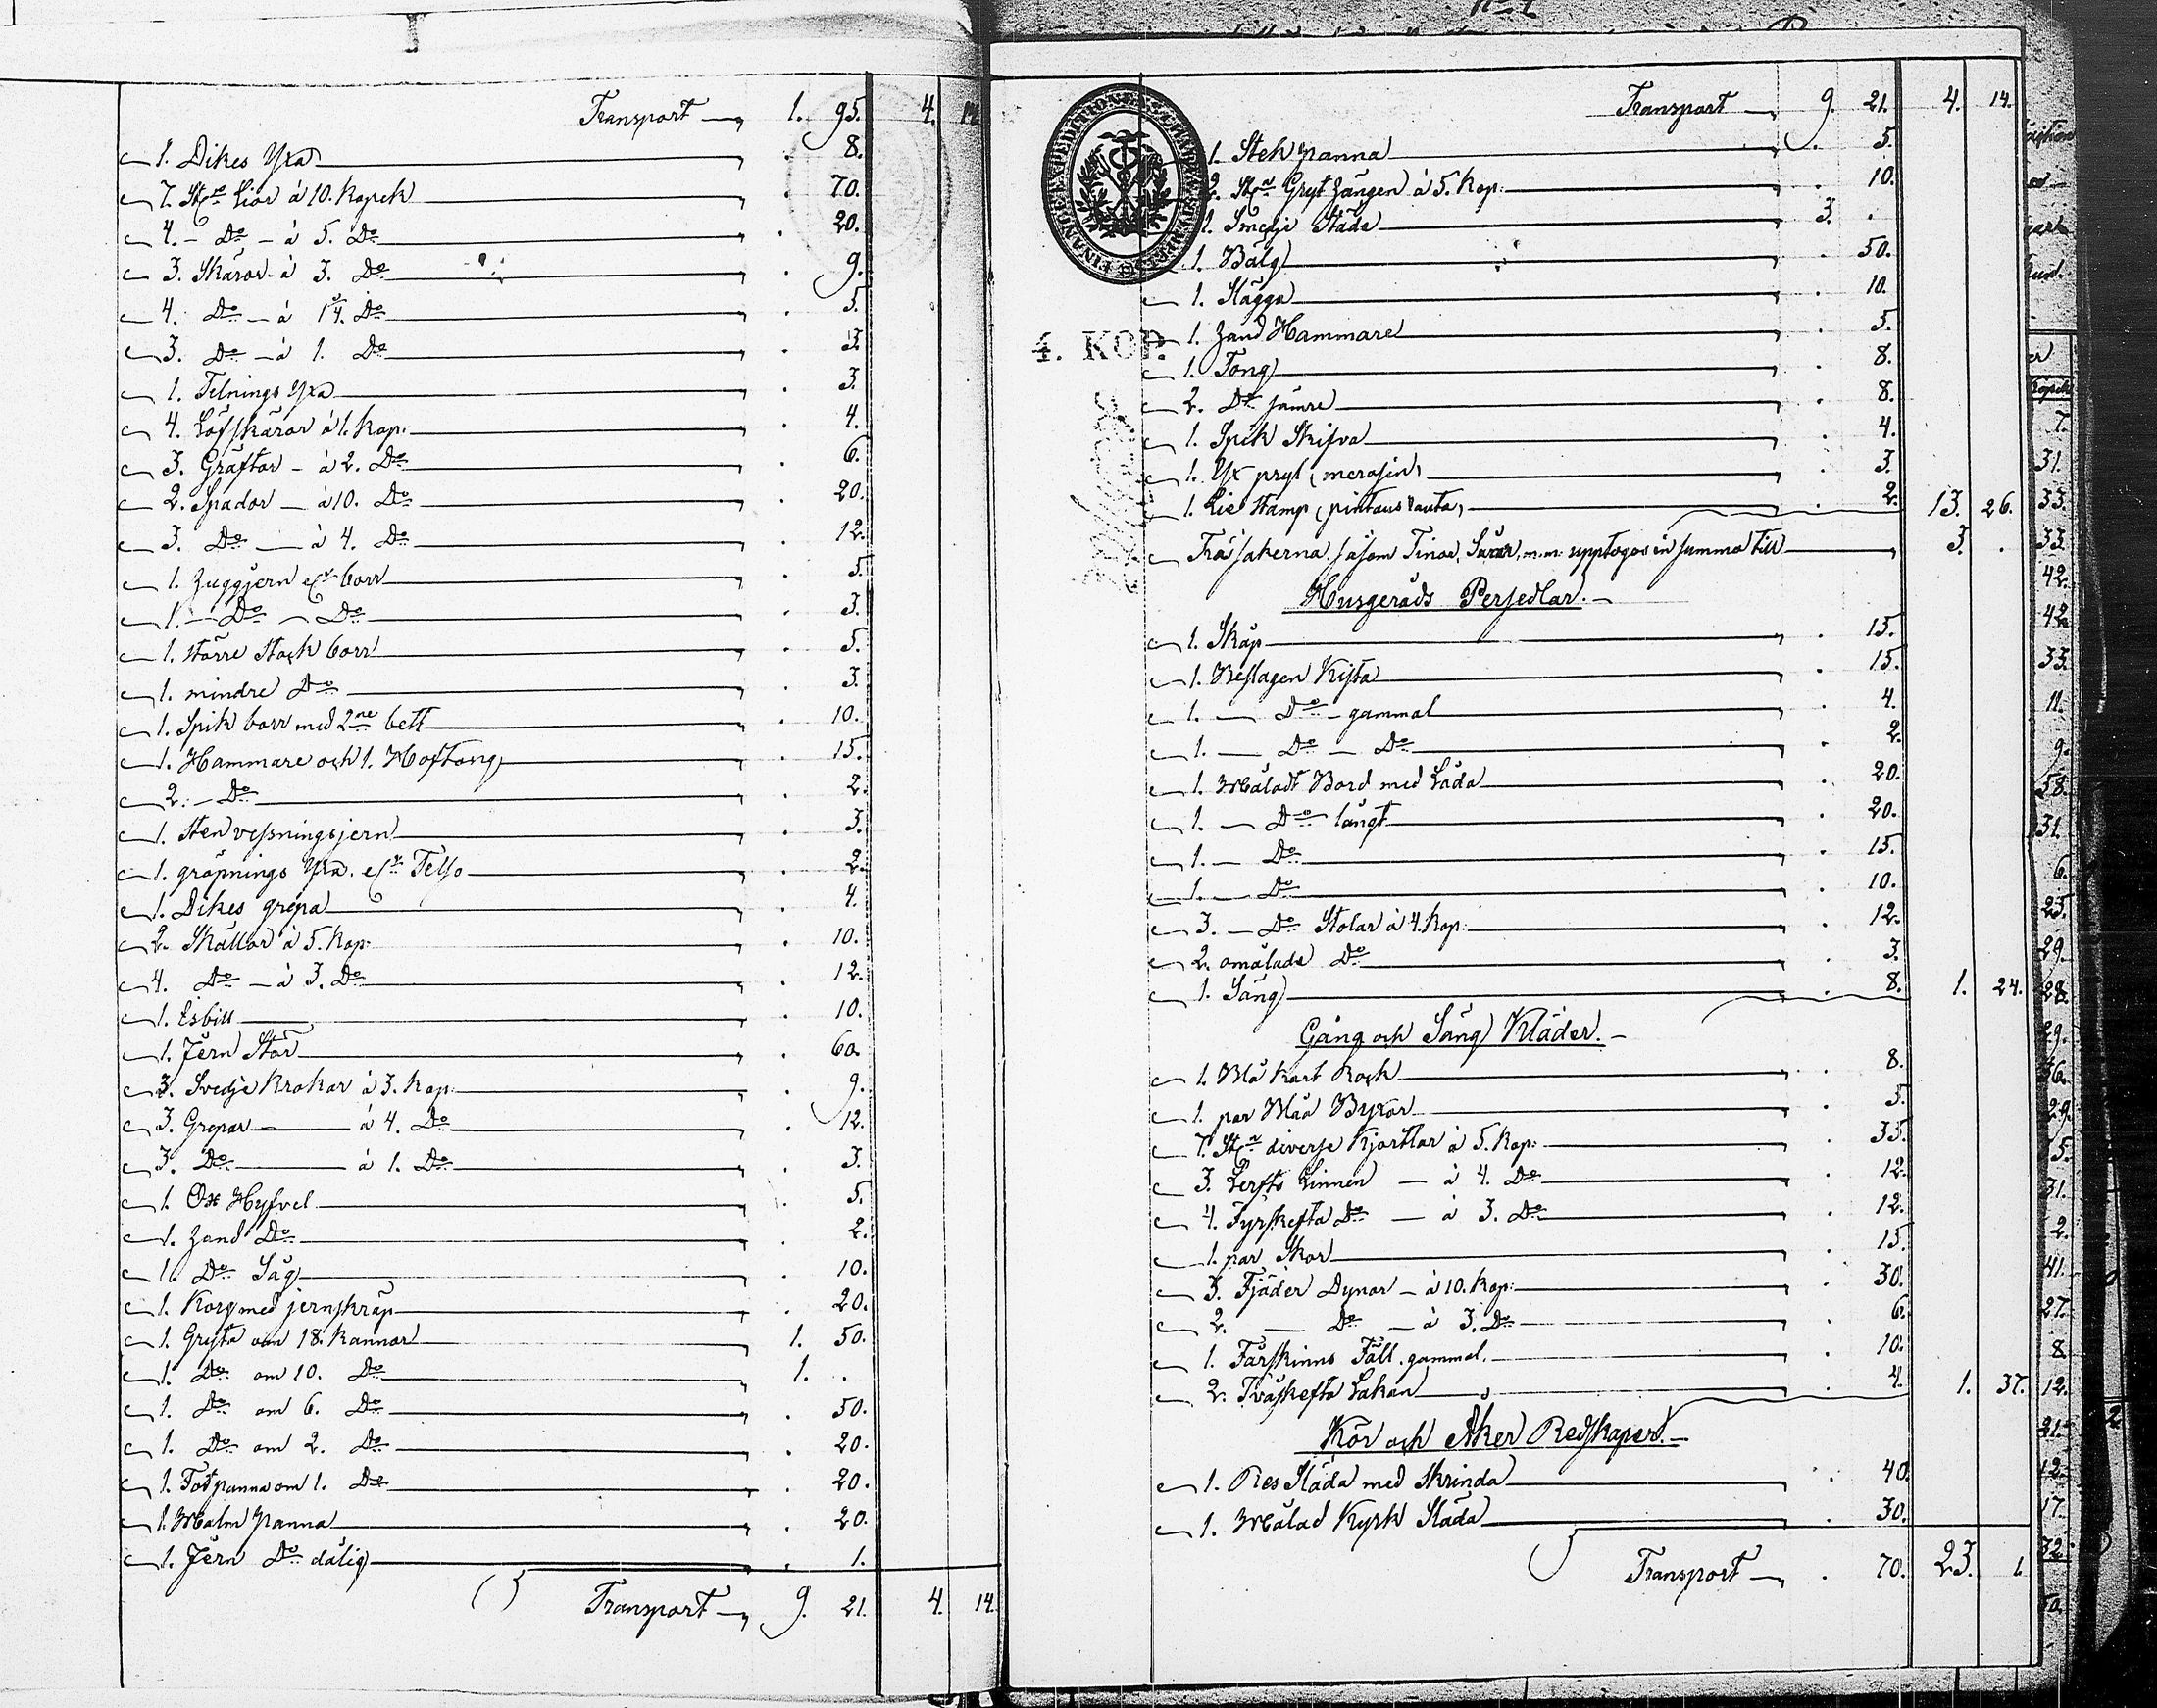 Transport 1. 95. 4. 14.
1. Dikes Yxa 8.
7. St:n Liar á 10. Kopek 70.
4. - Do - á 5. Do 20.
3. Skäror - á 3. Do 9.
4. Do - á 1¼. Do 5.
3. Do - á 1. Do 3.
1. Telnings Yxa 3.
4. Löfskäror á 1. Kop: 4.
3. Gräftor - á 2. Do 6.
2. Spador - á 10. Do 20.
3. Do - á 4. Do 12.
1. Huggjern el:r borr 5.
1. - Do - Do 3.
1. större Stock borr 5.
1. mindre Do 3.
1. Spik borr med 2ne bett 10.
1. Hammare och 1. Hoftong 15.
2. - Do 2.
1. Sten vessningsjern 3.
1. gröpnings Yxa. el:r Telso 2.
1. Dikes grepa 4.
2. Skällor á 5. Kop: 10.
4. Do - á 3. Do 12.
1. Isbill 10.
1. Jern Stör 60.
3. Svedje Krokar á 3. Kop: 9.
3. Grepar á 4. Do 12.
3. Do á 1. Do 3.
1. Ox Hyfvel 5.
1. Hand Do 2.
1. Do Såg 10.
1. Korg med jernskräp 20.
1. Gryta om 18. Kannor 1. 50.
1. Do om 10. Do 1. .
1. Do om 6. Do 50.
1. Do om 2. Do 20.
1. Fotpanna om 1. Do 20.
1. Malm panna 20.
1. Jern Do dålig 1.
Transport 9. 21. 4. 14.
4. KOP.
Transport 9. 21. 4. 14.
1. Stek panna 5.
2. St:n Gryt hängen á 5. Kop: 10.
1. Smedje Städe 3. .
1. Bälg 50.
1. Slägga 10.
1. Hand Hammare 5.
1. Tong 8.
2. Do sämre 8.
1. Spik Skifva 4.
1. Yx pryl (merasin) 3.
1. Lie Stamp (pintaus rauta) 2. 13. 26.
Träsakerna, såsom Tinor, Såar, m.m. upptogos en summa till 3. .
Husgeråds Persedlar.
1. Skåp 15.
1. Beslagen Kista 15.
1. Do - gammal 4.
1. Do - Do 2.
1. Måladt Bord med Låda 20.
1. Do långt 20.
1. Do 15.
1. Do 10.
3. - Do Stolar á 4. Kop: 12.
2. omålade Do 3.
1. Säng 8. 1. 24.
Gång och Säng Kläder.
1. Blå kort Rock 8.
1. par Blåa Byxor 5.
7. St:n diverse Kjortlar á 5. Kop: 35.
3. Lerfts Linnen - á 4. Do 12.
4. Fyrskefta Do - á 3. Do 12.
1. par Skor 15.
3. Fjäder Dynor - á 10. Kop: 30.
2. Do - á 3. Do 6.
1. Fårskinns Fäll. gammal. 10.
2. Tvåskefta Lakan 4. 1. 37.
Kör och Åker Redskaper.
1. Res Släda med Skrinda 40.
1. Målad Kyrk Släda 30.
Transport 70. 23. 1.